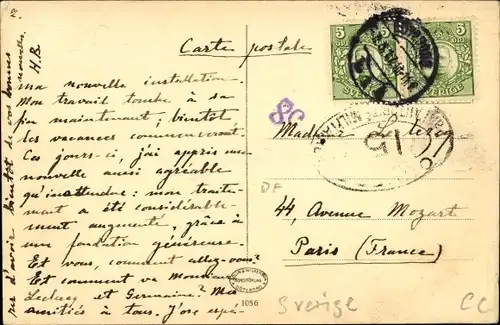 Carte postale
ma nouvelle installation.
Mon travail tombe à sa
fin maintenant; bientôt
les vacances commenceront.
Ces jours-ci, j'ai appris une
nouvelle aussi agréable
qu'inattendue: mon traite-
ment a été considérable-
ment augmenté, grâce à
une fondation généreuse.
Et vous, comment allez-vous?
Et comment va Monsieur
Leclercq et Germaine? Mes
amitiés à tous. J'ose espé-
rer d'avoir bientôt de vos bonnes
nouvelles.
H.B.
5 5
SVERIGE
44, Avenue Mozart
Paris (France)
1056
Sverige
CC